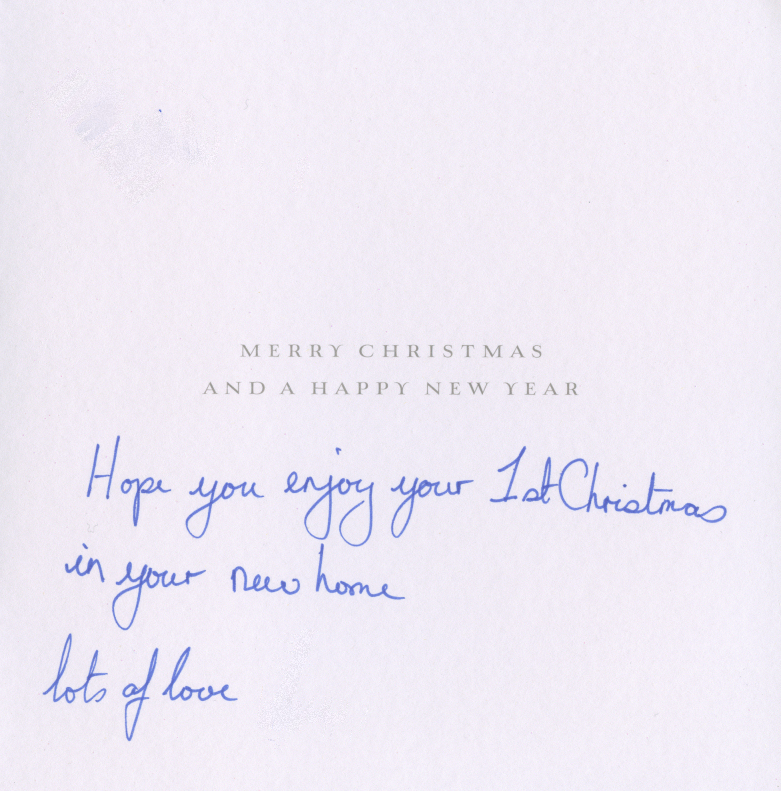 MERRY CHRISTMAS
AND A HAPPY NEW YEAR
Hope you enjoy your 1st Christmas
in your new home
lots of love